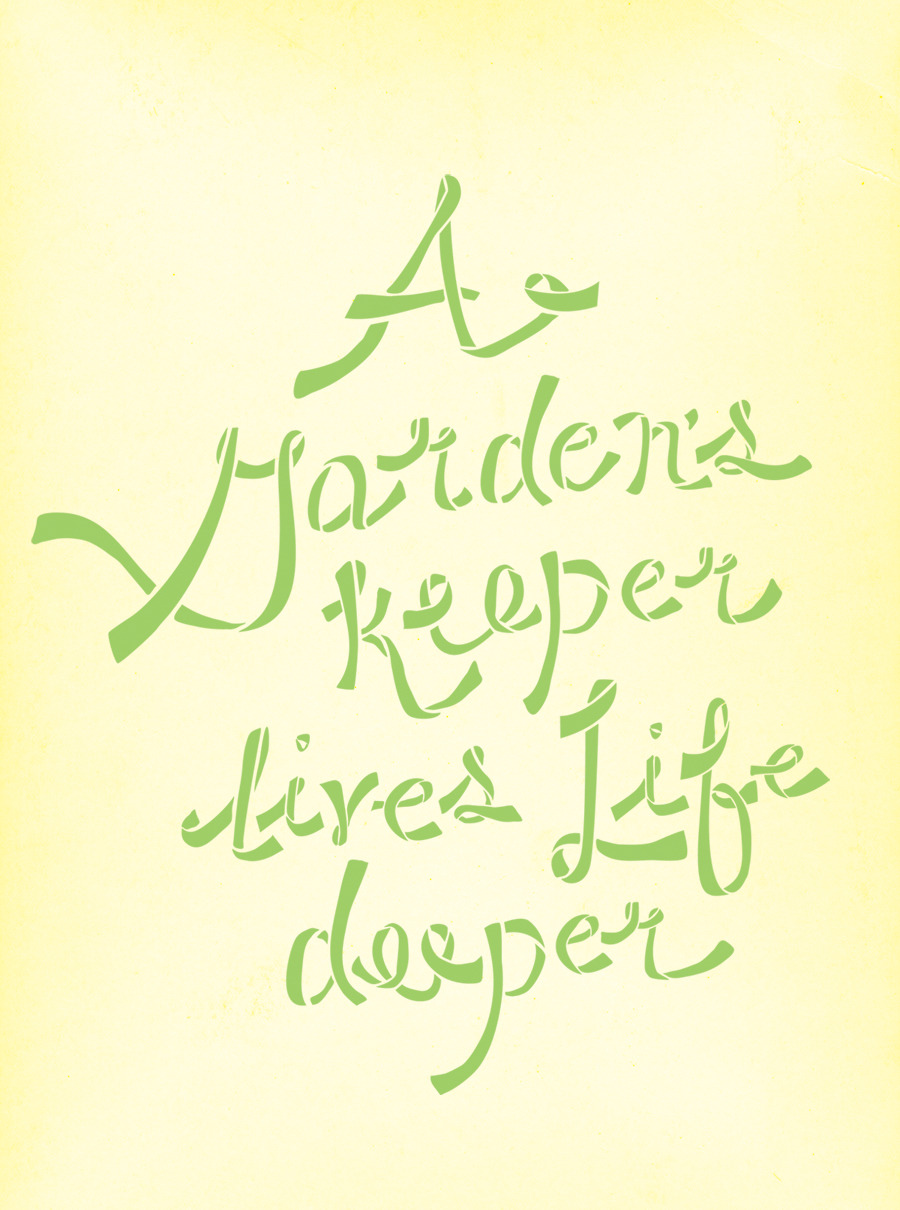 A
Garden's
keeper
lives Life
deeper